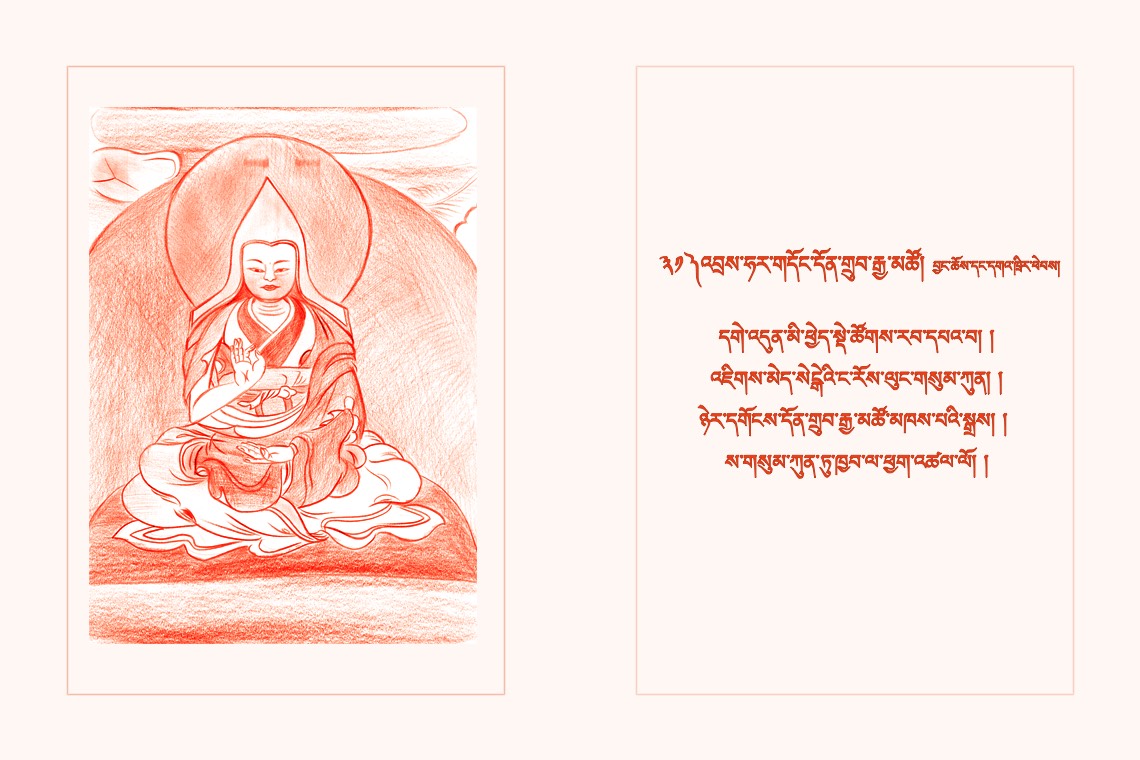 ༢༡ ༽འབྲས་ཧར་གདོང་དོན་གྲུབ་རྒྱ་མཚོ། བྱང་ཆོས་དང་དགའ་ཁྲིར་ཕེབས།
དགེ་འདུན་མི་ཕྱེད་སྡེ་ཚོགས་རབ་དཔའ་བ། །
འཇིགས་མེད་སེངྒེའི་ང་རོས་ལུང་གསུམ་ཀུན། །
ཉེར་དགོངས་དོན་གྲུབ་རྒྱ་མཚོ་མཁས་པའི་སྒྲས། །
ས་གསུམ་ཀུན་ཏུ་ཁྱབ་ལ་ཕྱག་འཚལ་ལོ། །